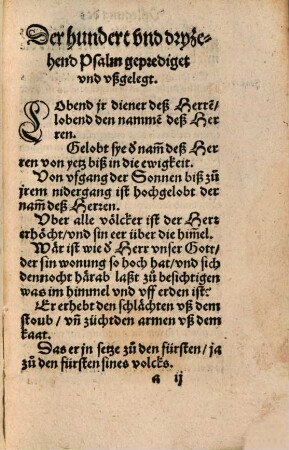 Der hundert vnd dryze-
hend Psalm geprediget
vnd vßgelegt.
Lobend jr diener deß Herrē/
lobend den nammē deß Her
ren.
Gelobt sye ď nam̄ deß Her
ren von yetz biß in die ewigkeit.
Von vfgang der Sonnen biß zů
jrem nidergang ist hochgelobt der
nam̄ deß Herren.
Vber alle völcker ist der Herr
erhöcht/vnd sin eer über die him̄el.
Wär ist wie ď Herr vnser Gott/
der sin wonung so hoch hat/vnd sich
dennocht härab laßt zů besichtigen
was im himmel vnd vff erden ist:
Er erhebt den schlächten vß dem
stoub/vn̄ züchtden armen vß dem
kaat.
Das er jn setze zů den fürsten/ja
zů den fürsten sines volcks.
a ij